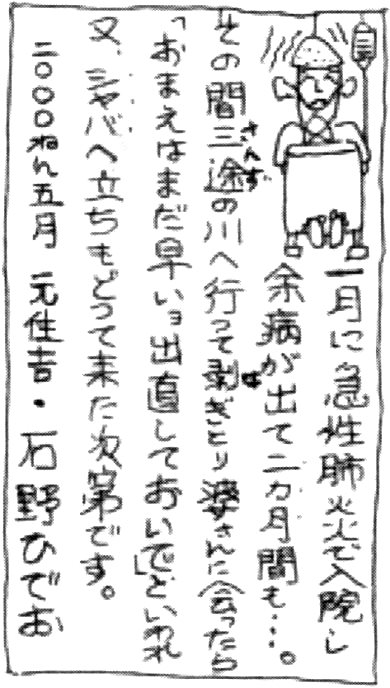 一月に急性肺炎で入院し
余病が出て二カ月間も…。
その間三途の川へ行って剥ぎとり婆さんに会ったら
さんず
は
「おまえはまだ早いョ出直しておいで」といわれ
又、シャバへ立ちもどって来た次第です。
二〇〇〇ねん五月 元住吉・石野ひでお